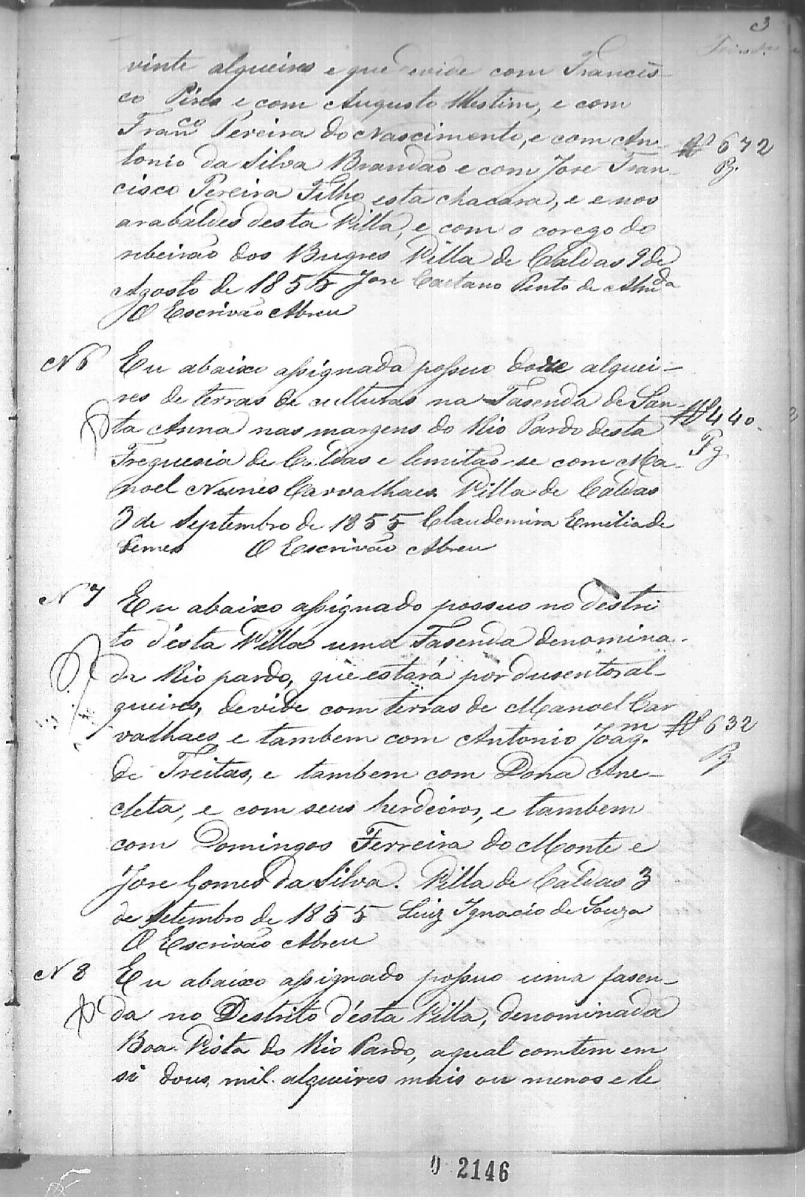 3
vinte alqueires e que devide com Francis-
co Pires e com Augusto Westim, e com
Franco Pereira do Nascimento, e com An-
tonio da Silva Brandão e com Jose Fran-
cisco Pereira Filho, esta chacara, e e nos
672
Pg.
arabaldes desta Villa, e com o corego do
ribeirão dos Bugres Villa de Caldas 9 de
Agosto de 1855 Jose Caetano Pinto de Almda
O Escrivão Abreu
N 6 Eu abaixo assignada possuo doze alquei-
res de terras de culturas na Fasenda de San-
ta Anna nas margens do Rio Pardo desta
440
Pg
Freguesia de Caldas e lemitão-se com Ma-
noel Nunes Carvalhaes. Villa de Caldas
3 de Septembro de 1855 Claudemira Emilia de
Lemes O Escrivão Abreu
N 7 Eu abaixo assignado possuo no destri
to d'ésta Villa uma Fasenda denomina-
da Rio pardo, que estará por dusentos al-
queires, devide com terras de Manoel Car
valhaes e tambem com Antonio Joaqm.
632
Pg
de Freitas, e tambem com Dona Ane-
cleta, e com seus herdeiros, e tambem
com Domingos Ferreira do Monte e
Jose Gomes da Silva. Villa de Caldas 3
de Setembro de 1855 Luiz Ignacio de Souza
O Escrivão Abreu
N 8 Eu abaixo assignado possuo uma fasen-
da no Destrito d'ésta Villa, denominada
Boa Vista do Rio Pardo, aqual comtem em
si dous mil alqueires mais ou menos e le
0 2146